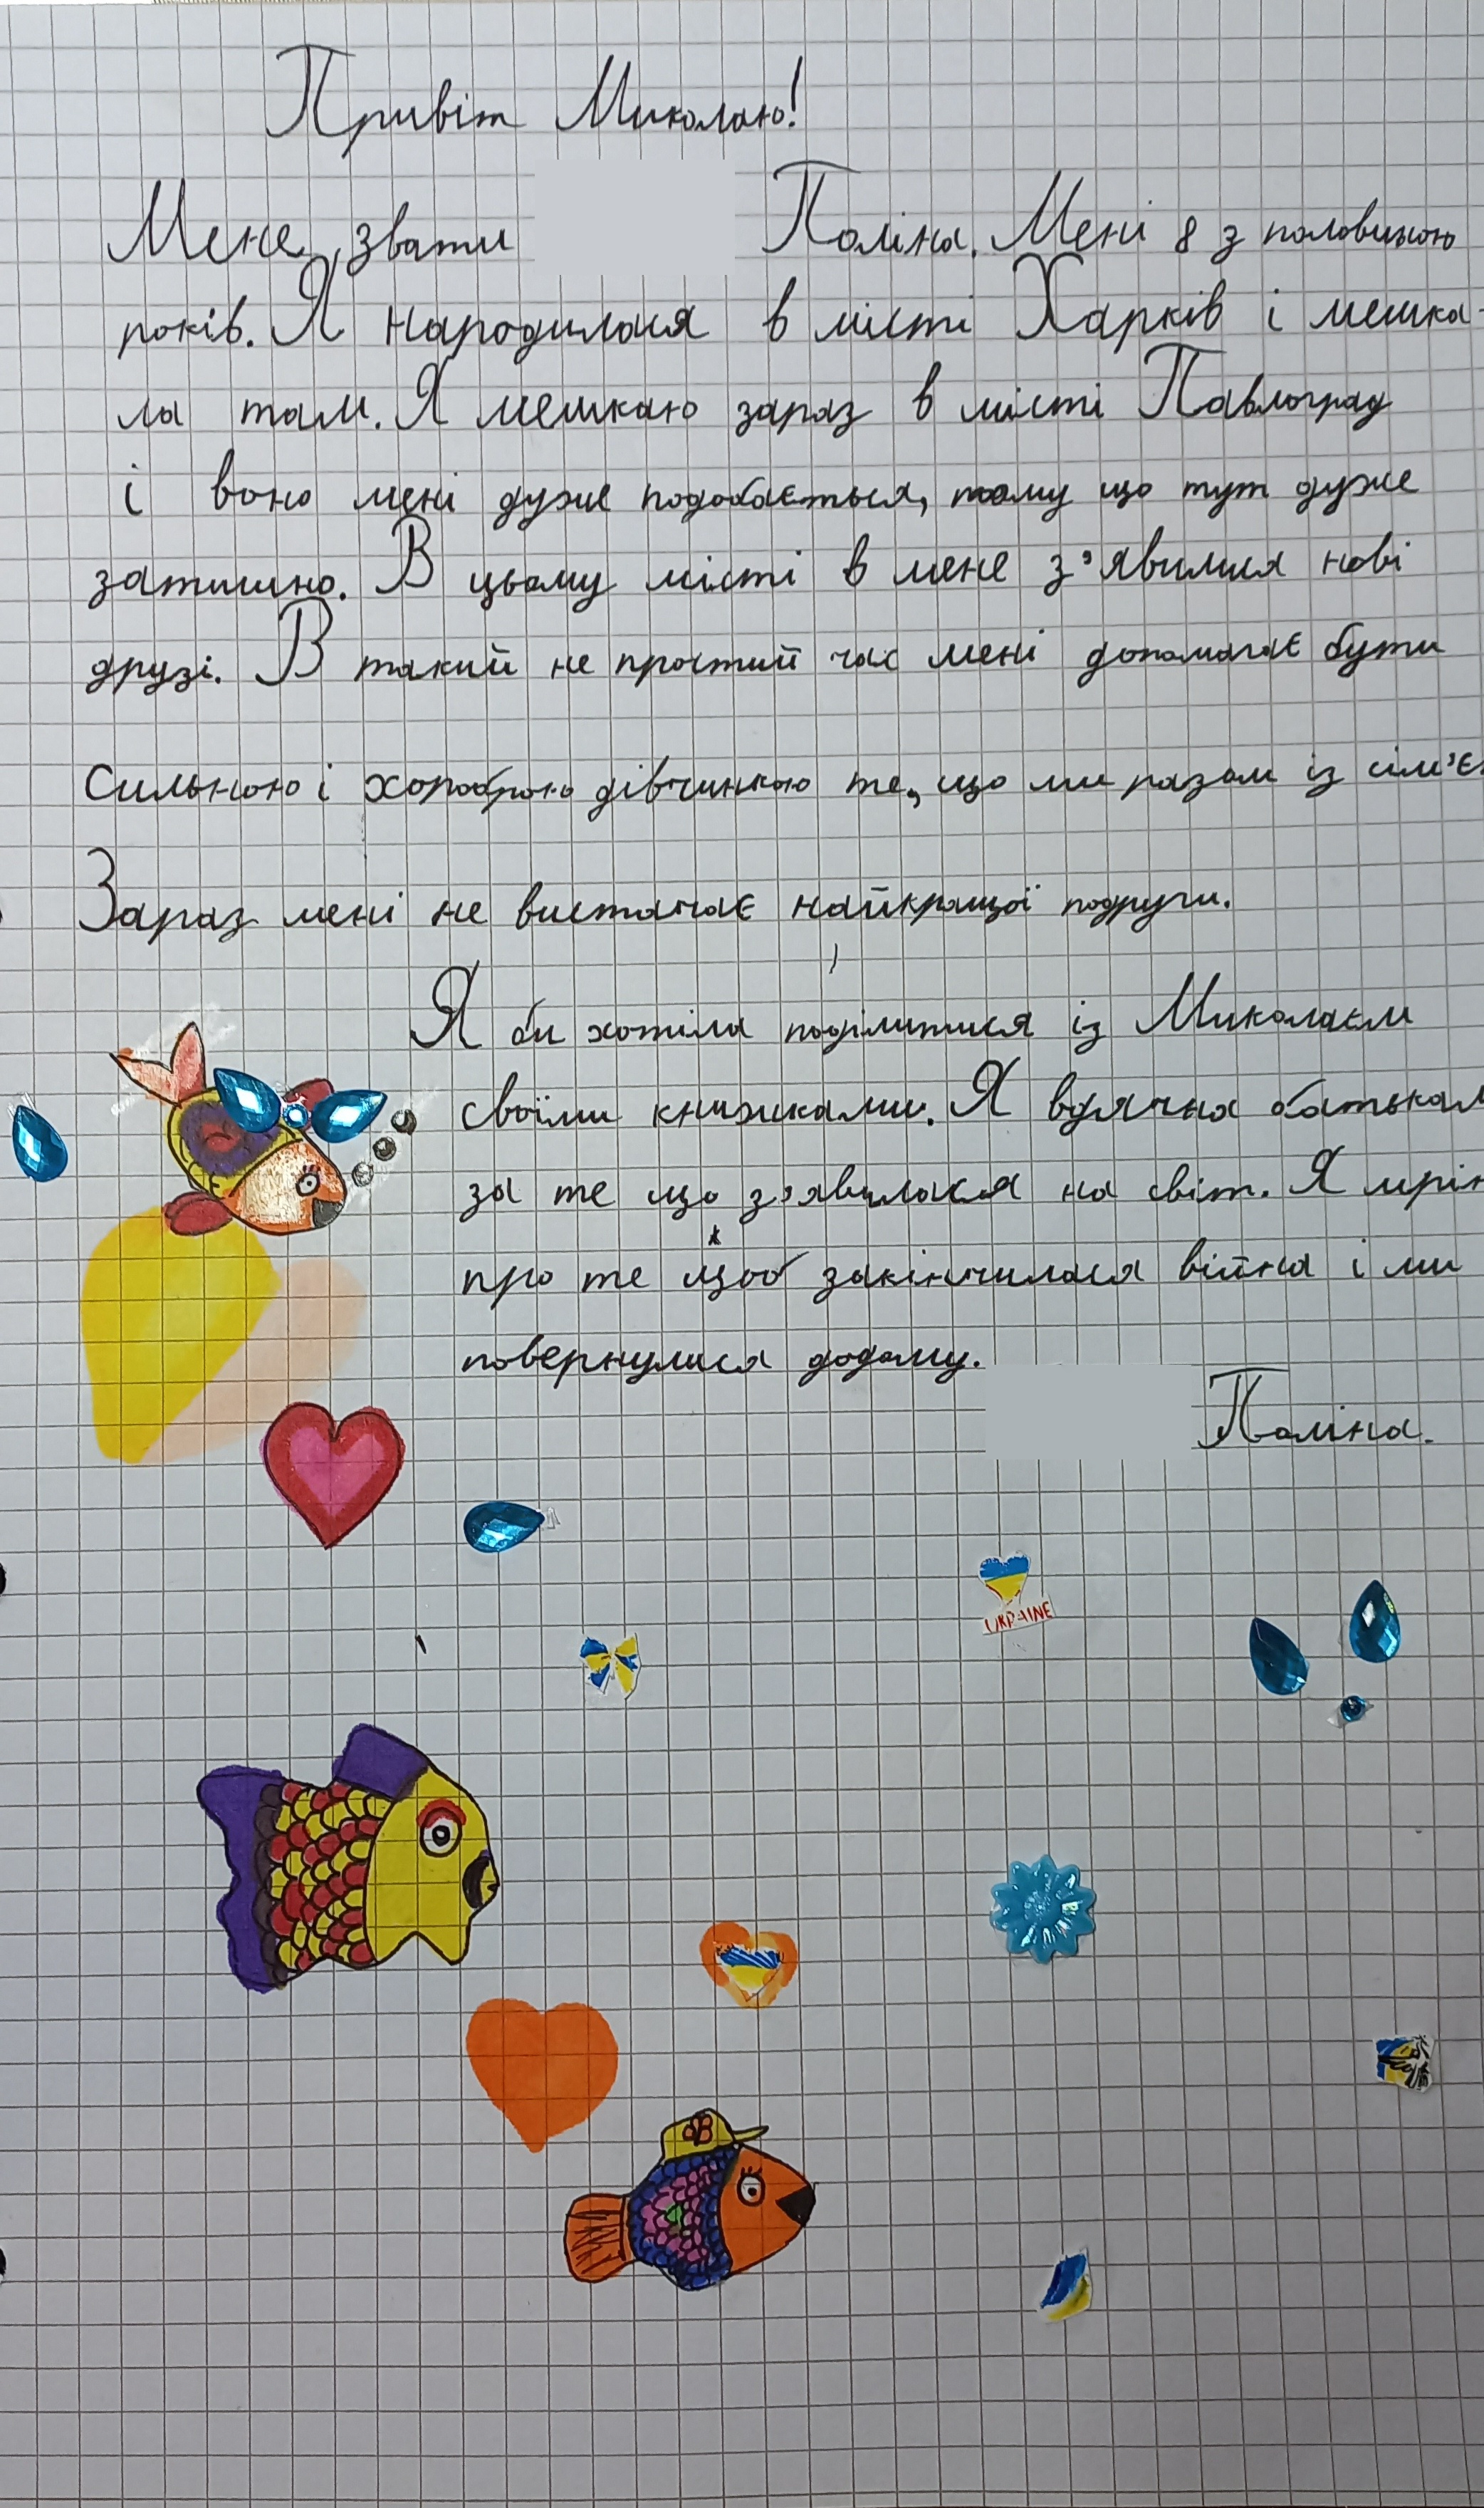 Привіт Миколаю!
Мене звати Поліна. Мені 8 з половиною
років. Я народилася в місті Харків і мешка-
ла там. Я мешкаю зараз в місті Павлоград
і воно мені дуже подобається, тому що тут дуже
затишно. В цьому місті в мене з'явилися нові
друзі. В такий не простий час мені допомагає бути
сильною і хороброю дівчинкою те, що ми разом із сім'є
Зараз мені не вистачає найкращої подруги.
Я би хотіла поділитися із Миколаєм
своїми книжками. Я вдячна батькам
за те що з'явилася на світ. Я мрію
про те щоб закінчилася війна і ми
повернулися додому.
Поліна.
UKRAINE